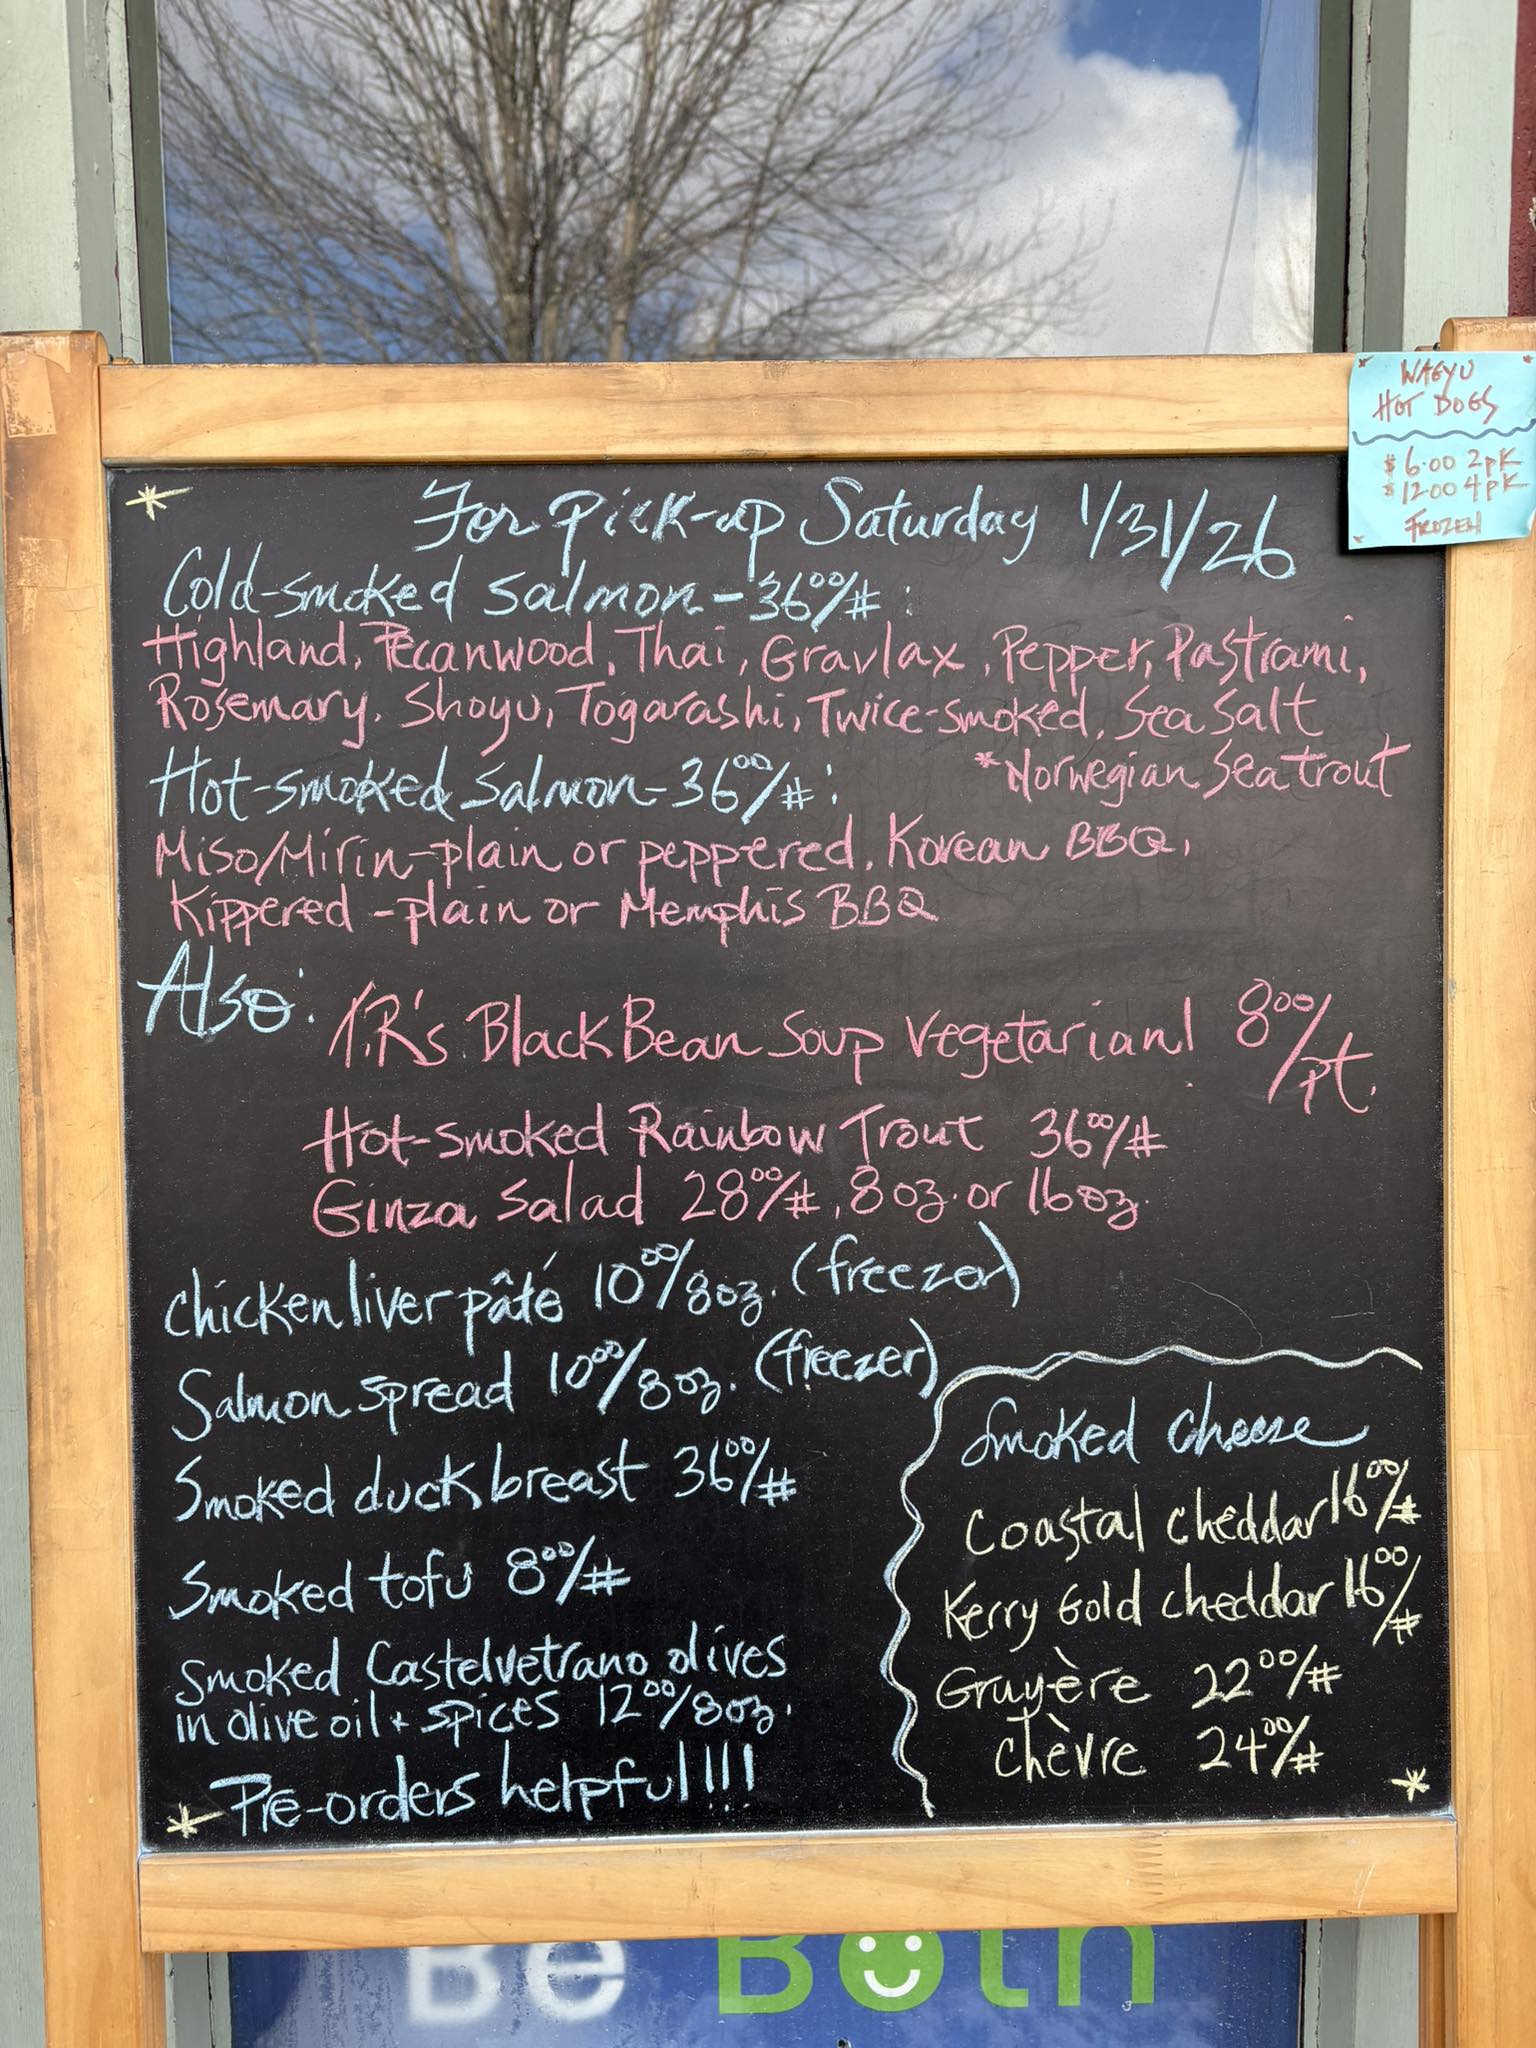 WAGYU
HOT DOGS
$6.00 2pk
$12.00 4pk
FROZEN
For pick-up Saturday 1/31/26
Cold-smoked salmon - 36⁰⁰/# :
Highland, Pecanwood, Thai, Gravlax, Pepper, Pastrami,
Rosemary, Shoyu, Togarashi, Twice-smoked, Sea Salt
*Norwegian Sea trout
Hot-smoked salmon - 36⁰⁰/# :
Miso/Mirin-plain or peppered, Korean BBQ,
Kippered - plain or Memphis BBQ
Also:
Black Bean Soup Vegetarian! 8⁰⁰/pt.
Hot-smoked Rainbow Trout 36⁰⁰/#
Ginza Salad 28⁰⁰/#, 8 oz. or 16 oz.
Chicken liver pâté 10⁰⁰/8oz. (freezer)
Salmon spread 10⁰⁰/8oz. (freezer)
Smoked duck breast 36⁰⁰/#
Smoked tofu 8⁰⁰/#
Smoked Castelvetrano olives
in olive oil + spices 12⁰⁰/8oz.
Pre-orders helpful!!!
Smoked Cheese
Coastal cheddar 16⁰⁰/#
Kerry Gold cheddar 16⁰⁰/#
Gruyère 22⁰⁰/#
Chèvre 24⁰⁰/#
Be Both